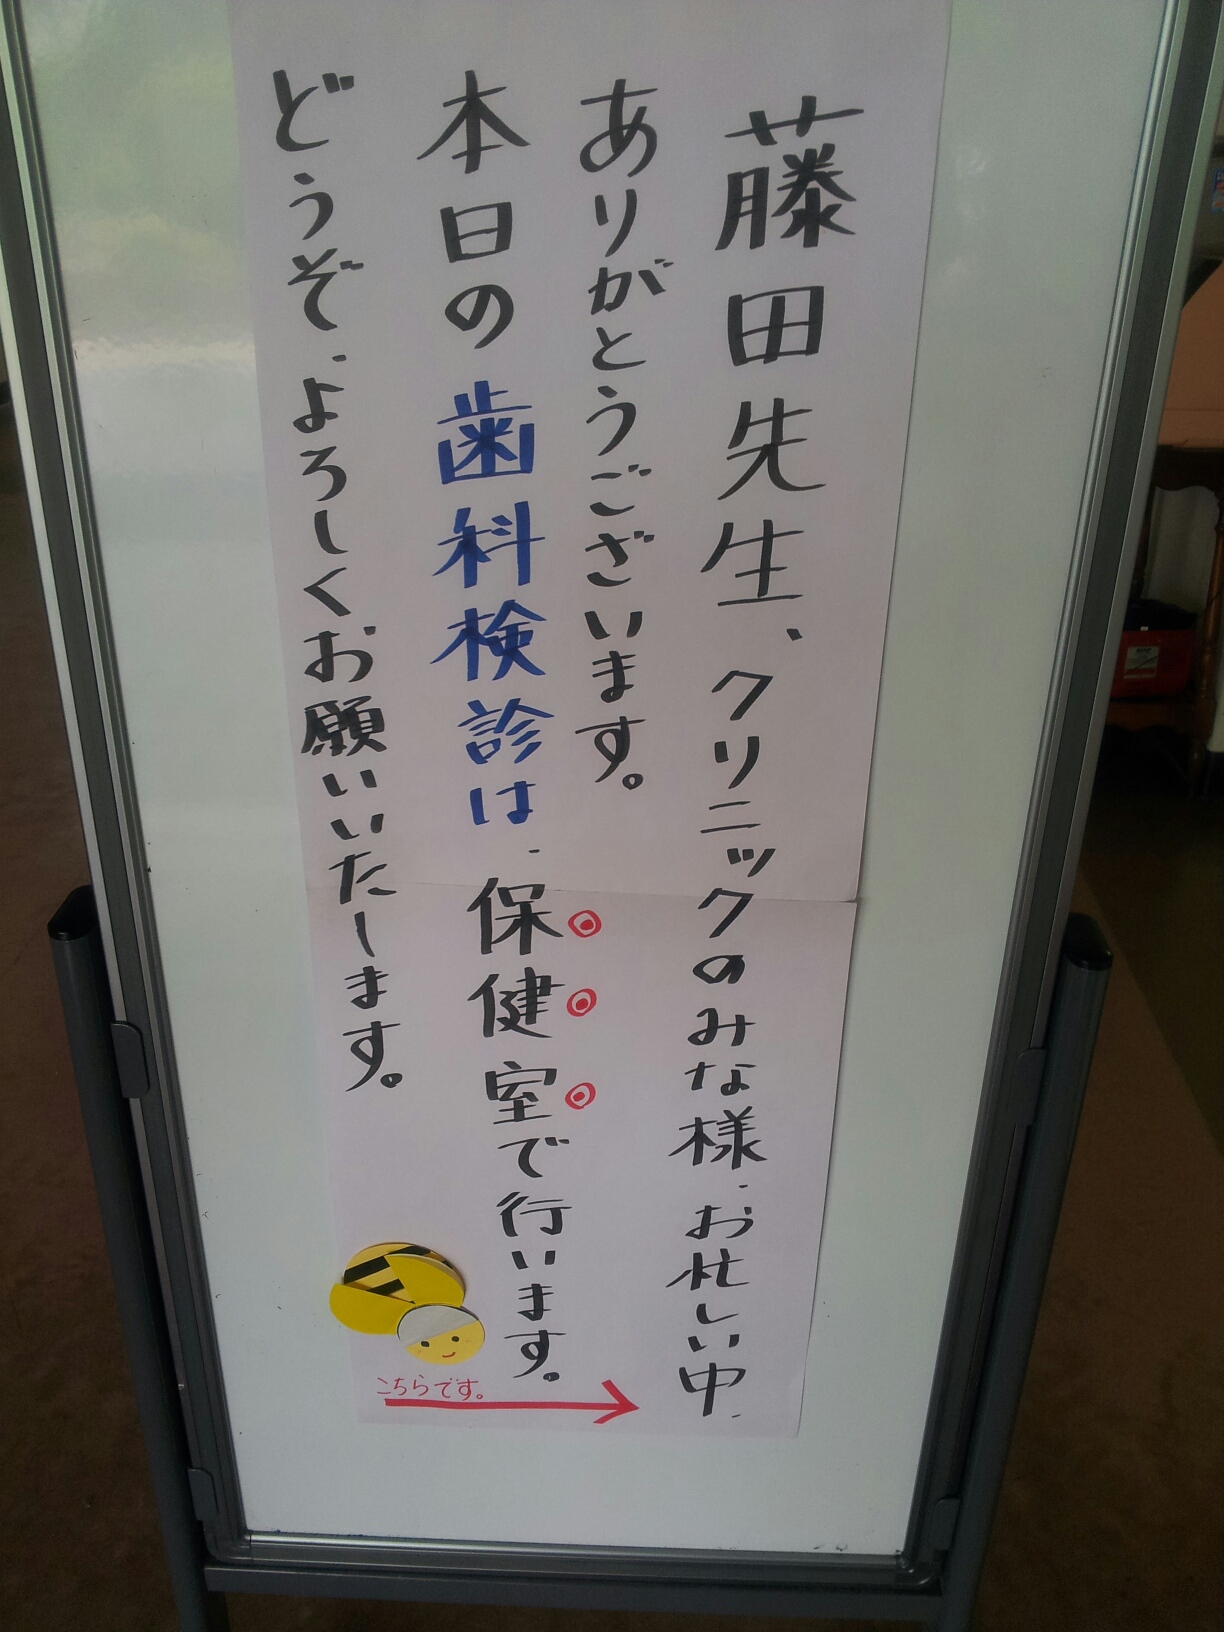 藤田先生、クリニックのみな様、お忙しい中、
ありがとうございます。
本日の歯科検診は、保健室で行います。
どうぞ、よろしくお願いいたします。
こちらです。